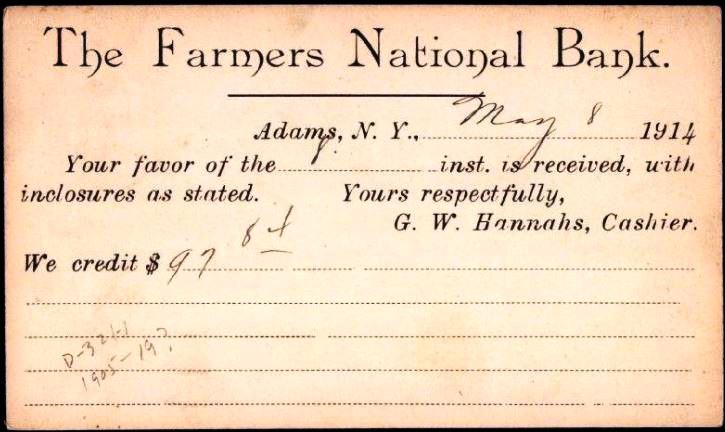 The Farmers National Bank.
Adams, N. Y., May 8 1914
Your favor of the inst. is received, with
inclosures as stated. Yours respectfully,
G. W. Hannahs, Cashier.
We credit $ 97
D-321-1
1905-19